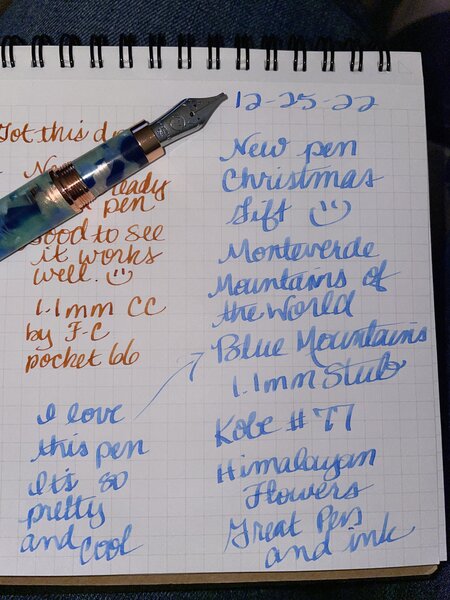 12-25-22
New pen
Christmas
Gift
Monteverde
Mountains of
the World
Blue Mountains
1.1mm Stub
Kobe # 77
Himalayan
Flowers
Great Pen
and ink
Got this
pen
Good to see
it works
well.
1.1mm CC
by F-C
pocket 66
I love
this pen
It's so
pretty
and cool